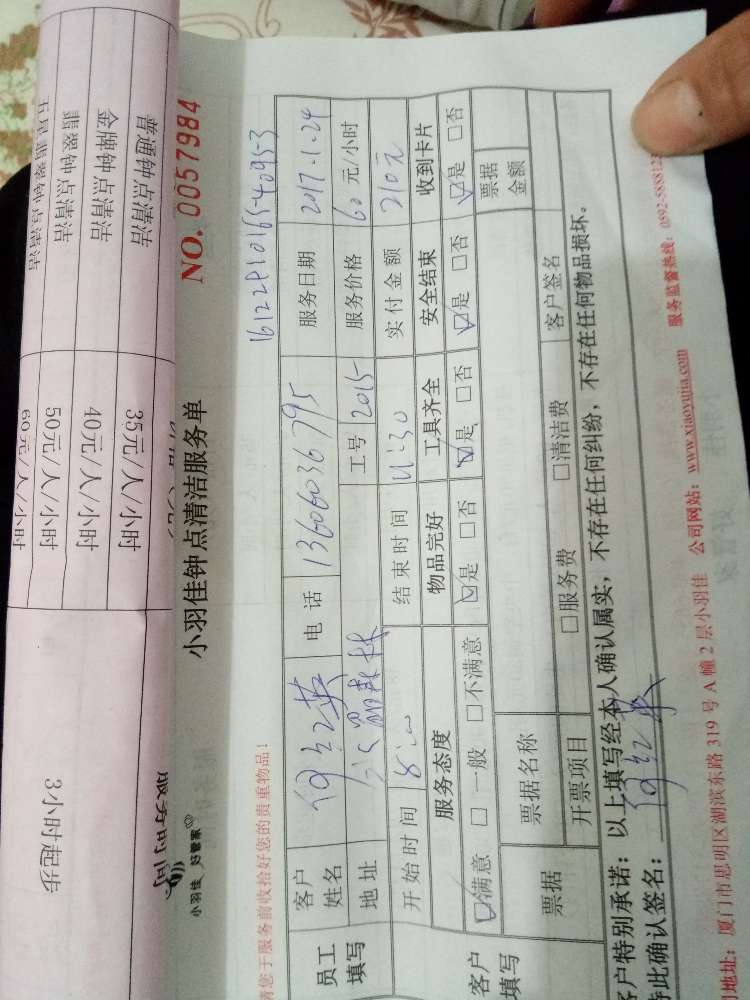 普通钟点清洁 35元/人/小时
金牌钟点清洁 40元/人/小时
翡翠钟点清洁 50元/人/小时
五星翡翠钟点清洁 60元/人/小时
3小时起步
服务时间
小羽佳 好管家
小羽佳钟点清洁服务单 NO. 0057984
请您于服务前收拾好您的贵重物品!
员工填写 客户姓名 何红英 电话 13606036795 服务日期 2017.1.24
地址 工号 2015 服务价格 60 元/小时
开始时间 结束时间 11:30 实付金额 210元
客户填写 服务态度 物品完好 工具齐全 安全结束 收到卡片
☑满意 □一般 □不满意 ☑是 □否 ☑是 □否 ☑是 □否 ☑是 □否
票据 票据名称 票据金额
开票项目 □服务费 □清洁费 客户签名
客户特别承诺：以上填写经本人确认属实，不存在任何纠纷，不存在任何物品损坏。
特此确认签名： 何红英
地址：厦门市思明区湖滨东路 319 号 A 幢 2 层小羽佳 公司网站：www.xiaoyujia.com 服务监督热线：0592-5888122